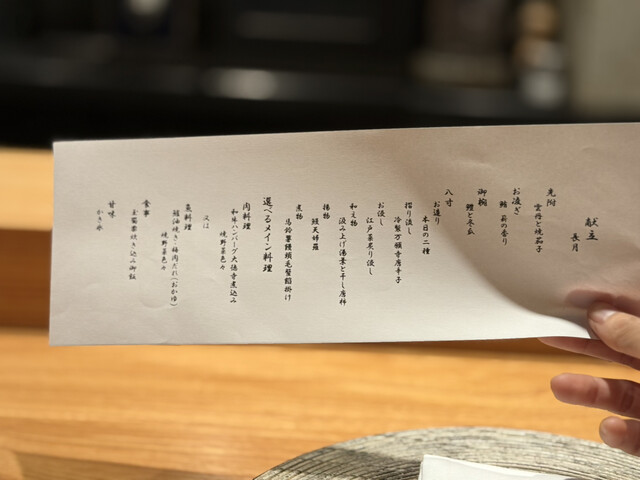 献立
長月
先附
雲丹と焼茄子
お凌ぎ
鮨 菊の香り
御椀
鱧と冬瓜
八寸
お造り
本日の二種
摺り流し
冷製万願寺唐辛子
お浸し
江戸菜炙り浸し
和え物
汲み上げ湯葉と干し唐柿
揚物
鰻天婦羅
煮物
馬鈴薯饅頭毛蟹餡掛け
選べるメイン料理
肉料理
和牛ハンバーグ大徳寺煮込み
焼野菜色々
又は
魚料理
鰆油焼き・梅肉だれ(おかゆ)
焼野菜色々
食事
玉蜀黍炊き込み御飯
甘味
かき氷